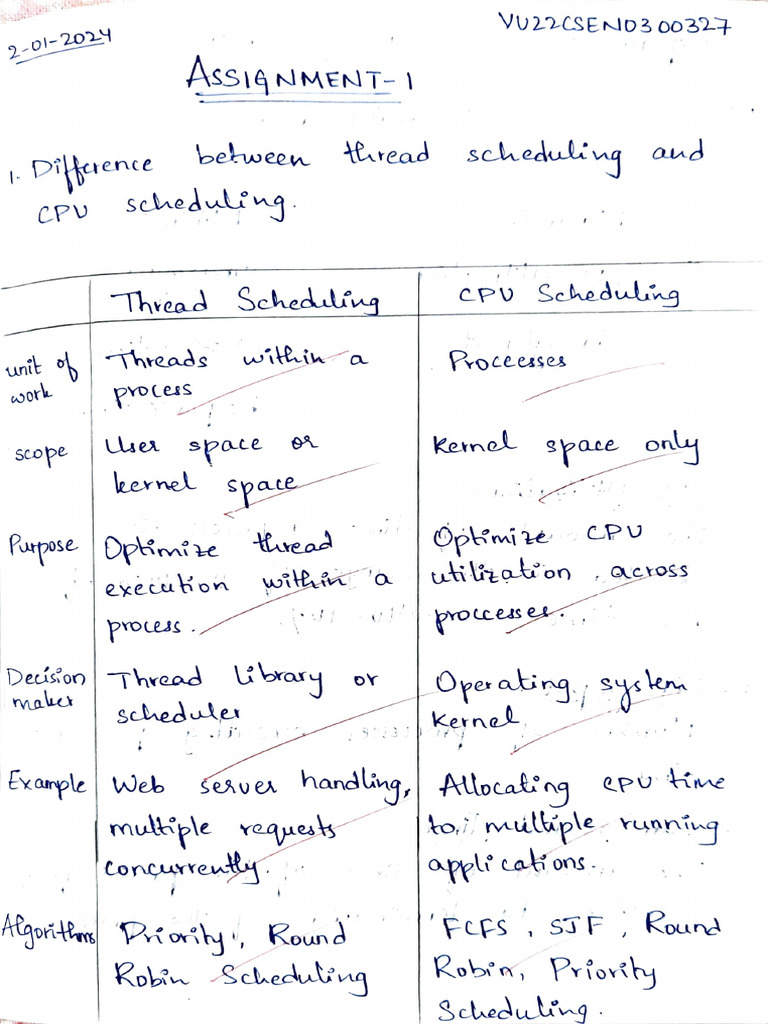 2-01-2024
VU22CSEN0300327
ASSIGNMENT-1
1. Difference between thread scheduling and
CPU scheduling.
Thread Scheduling
CPU Scheduling
unit of
work
Threads within a
process
Proccesses
scope
User space or
kernel space
Kernel space only
Purpose
Optimize thread
execution within a
process.
Optimize CPU
utilization across
proccesses.
Decision
maker
Thread library or
scheduler
Operating system
kernel
Example
Web server handling,
multiple requests
concurrently.
Allocating CPU time
to multiple running
applications.
Algorithms
Priority, Round
Robin Scheduling
FCFS, SJF, Round
Robin, Priority
Scheduling.